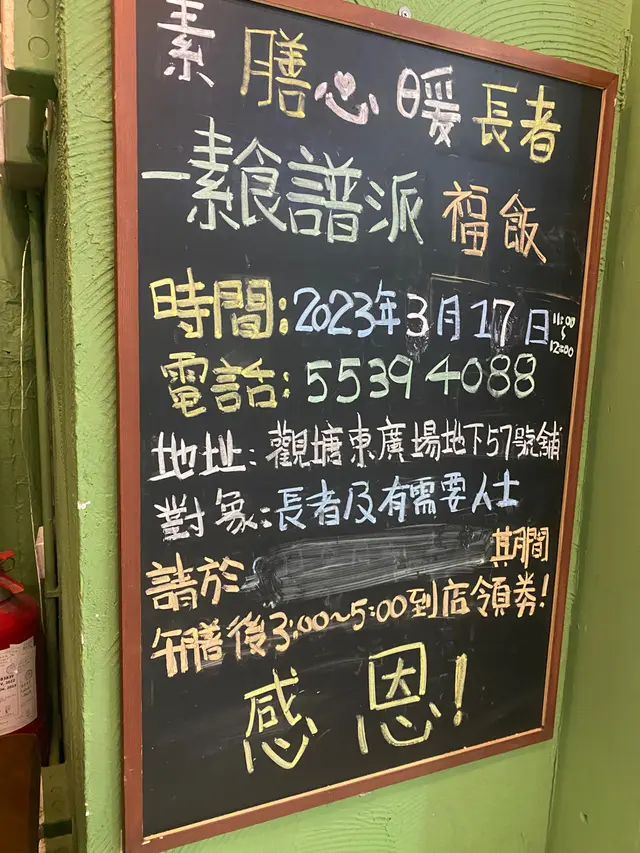 素膳心暖長者
一素食譜派福飯
時間:2023年3月17日 11:00~12:00
電話:55394088
地址:觀塘東廣場地下57號舖
對象:長者及有需要人士
請於 期間
午膳後3:00~5:00到店領券!
感恩!